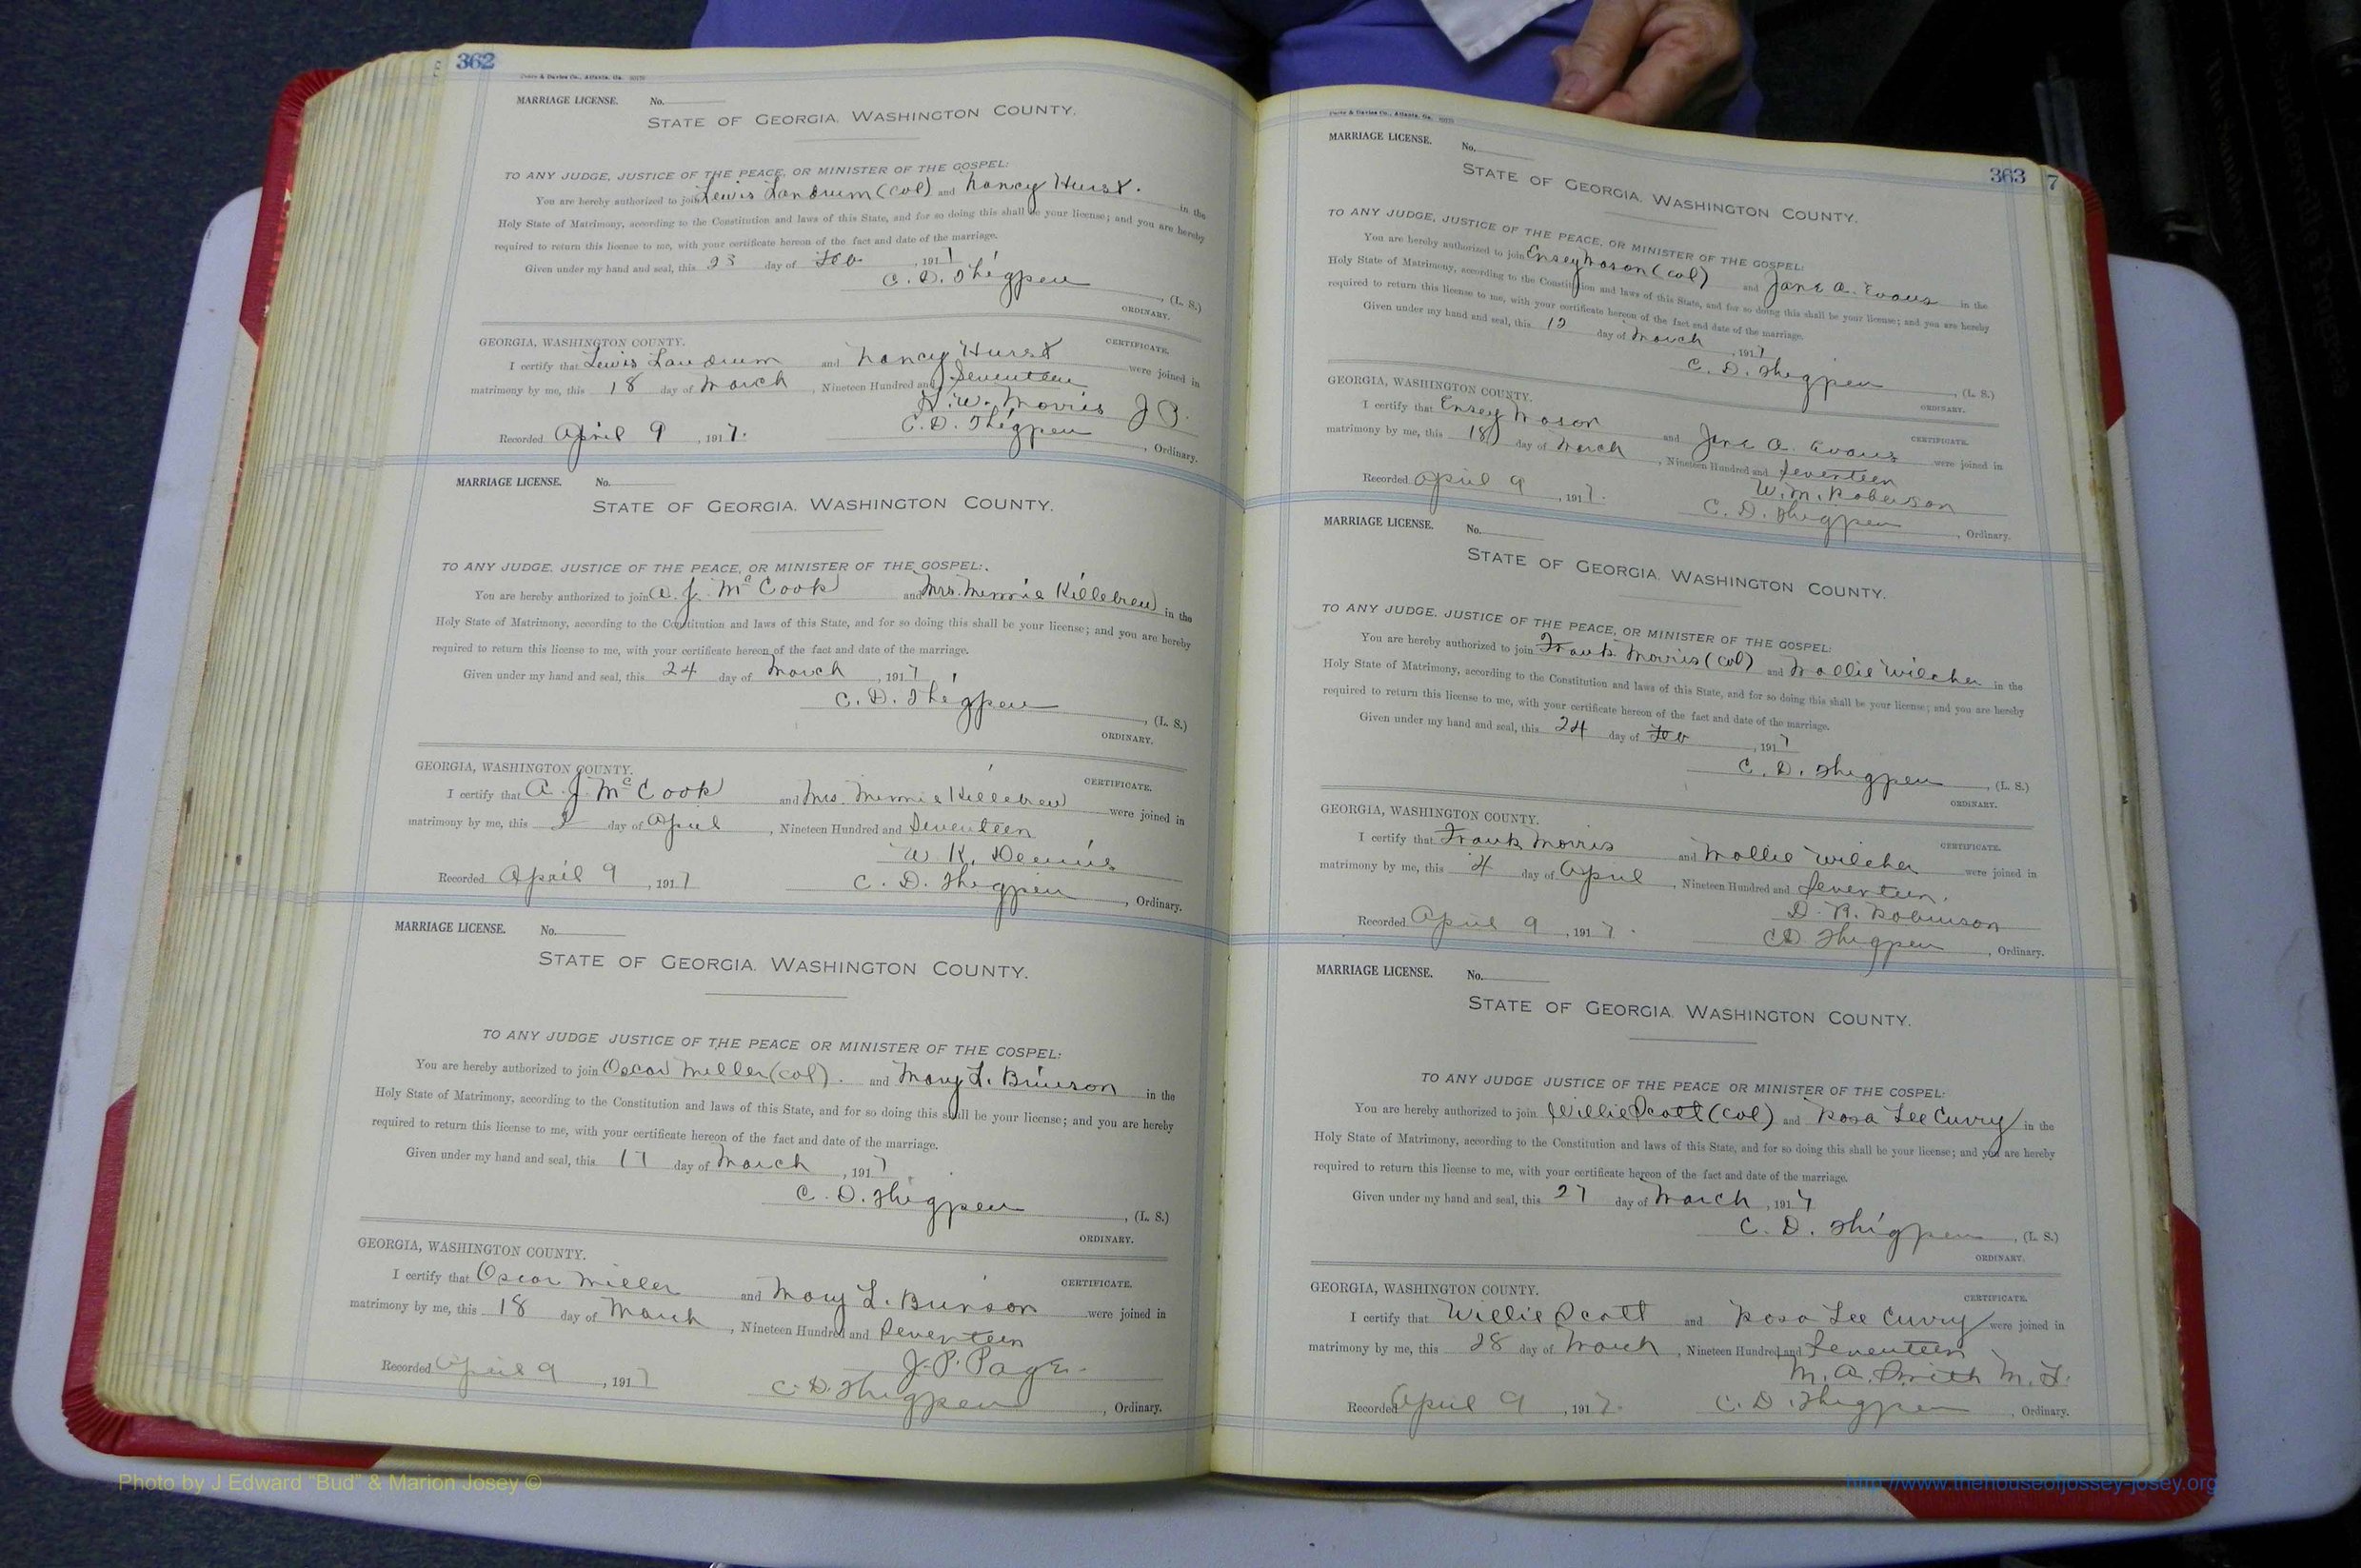 362
MARRIAGE LICENSE. No.
STATE OF GEORGIA, WASHINGTON COUNTY.
TO ANY JUDGE, JUSTICE OF THE PEACE, OR MINISTER OF THE GOSPEL:
You are hereby authorized to join Lewis Landrum (col) and Nancy Hurst. in the
Holy State of Matrimony, according to the Constitution and laws of this State, and for so doing this shall be your license; and you are hereby
required to return this license to me, with your certificate hereon of the fact and date of the marriage.
Given under my hand and seal, this 23 day of Feb, 1917
C. D. Thigpen, (L. S.)
ORDINARY.
GEORGIA, WASHINGTON COUNTY. CERTIFICATE.
I certify that Lewis Landrum and Nancy Hurst were joined in
matrimony by me, this 18 day of March, Nineteen Hundred and Seventeen
W. Morris J P.
Recorded April 9, 1917. C. D. Thigpen, Ordinary.
MARRIAGE LICENSE. No.
STATE OF GEORGIA, WASHINGTON COUNTY.
TO ANY JUDGE, JUSTICE OF THE PEACE, OR MINISTER OF THE GOSPEL:
You are hereby authorized to join A. J. McCook and Mrs. Minnie Killebrew in the
Holy State of Matrimony, according to the Constitution and laws of this State, and for so doing this shall be your license; and you are hereby
required to return this license to me, with your certificate hereon of the fact and date of the marriage.
Given under my hand and seal, this 24 day of March, 1917
C. D. Thigpen, (L. S.)
ORDINARY.
GEORGIA, WASHINGTON COUNTY. CERTIFICATE.
I certify that A. J. McCook and Mrs. Minnie Killebrew were joined in
matrimony by me, this day of April, Nineteen Hundred and Seventeen
W. K. Dennis
Recorded April 9, 1917 C. D. Thigpen, Ordinary.
MARRIAGE LICENSE. No.
STATE OF GEORGIA, WASHINGTON COUNTY.
TO ANY JUDGE JUSTICE OF THE PEACE OR MINISTER OF THE GOSPEL:
You are hereby authorized to join Oscar Miller (col). and Mary L. Brinson in the
Holy State of Matrimony, according to the Constitution and laws of this State, and for so doing this shall be your license; and you are hereby
required to return this license to me, with your certificate hereon of the fact and date of the marriage.
Given under my hand and seal, this 17 day of March, 1917
C. D. Thigpen, (L. S.)
ORDINARY.
GEORGIA, WASHINGTON COUNTY.
CERTIFICATE.
I certify that Oscar Miller and Mary L. Brinson were joined in
matrimony by me, this 18 day of March, Nineteen Hundred and Seventeen
J. P. Page
Recorded April 9, 1917 C. D. Thigpen, Ordinary.
363 7
MARRIAGE LICENSE. No.
STATE OF GEORGIA, WASHINGTON COUNTY.
TO ANY JUDGE, JUSTICE OF THE PEACE, OR MINISTER OF THE GOSPEL:
You are hereby authorized to join Ensey Mason (col) and Jane A. Evans in the
Holy State of Matrimony, according to the Constitution and laws of this State, and for so doing this shall be your license; and you are hereby
required to return this license to me, with your certificate hereon of the fact and date of the marriage.
Given under my hand and seal, this 12 day of March, 1917
C. D. Thigpen, (L. S.)
ORDINARY.
GEORGIA, WASHINGTON COUNTY. CERTIFICATE.
I certify that Ensey Mason and Jane A. Evans were joined in
matrimony by me, this 18 day of March, Nineteen Hundred and Seventeen
W. M. Roberson
Recorded April 9, 1917. C. D. Thigpen, Ordinary.
MARRIAGE LICENSE. No.
STATE OF GEORGIA, WASHINGTON COUNTY.
TO ANY JUDGE, JUSTICE OF THE PEACE, OR MINISTER OF THE GOSPEL:
You are hereby authorized to join Frank Morris (col) and Mollie Wilcher in the
Holy State of Matrimony, according to the Constitution and laws of this State, and for so doing this shall be your license; and you are hereby
required to return this license to me, with your certificate hereon of the fact and date of the marriage.
Given under my hand and seal, this 24 day of Feb, 1917
C. D. Thigpen, (L. S.)
ORDINARY.
GEORGIA, WASHINGTON COUNTY. CERTIFICATE.
I certify that Frank Morris and Mollie Wilcher were joined in
matrimony by me, this 4 day of April, Nineteen Hundred and Seventeen.
D. R. Robinson
Recorded April 9, 1917. C D Thigpen, Ordinary.
MARRIAGE LICENSE. No.
STATE OF GEORGIA, WASHINGTON COUNTY.
TO ANY JUDGE JUSTICE OF THE PEACE OR MINISTER OF THE GOSPEL:
You are hereby authorized to join Willie Scott (col) and Rosa Lee Curry in the
Holy State of Matrimony, according to the Constitution and laws of this State, and for so doing this shall be your license; and you are hereby
required to return this license to me, with your certificate hereon of the fact and date of the marriage.
Given under my hand and seal, this 27 day of March, 1917
C. D. Thigpen, (L. S.)
ORDINARY.
GEORGIA, WASHINGTON COUNTY.
CERTIFICATE.
I certify that Willie Scott and Rosa Lee Curry were joined in
matrimony by me, this 28 day of March, Nineteen Hundred and Seventeen
M. A. Smith M. G.
Recorded April 9, 1917. C. D. Thigpen, Ordinary.
Photo by J Edward "Bud" & Marion Josey ©
http://www.thehouseofjossey-josey.org